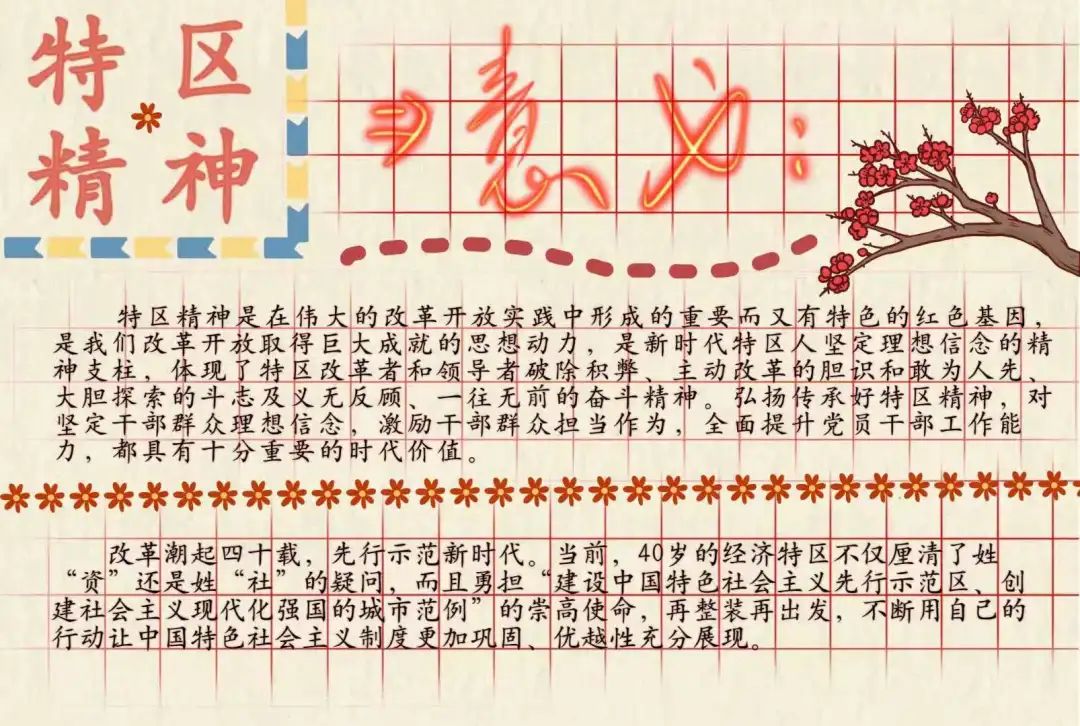 特区
精神
⇒意义:
特区精神是在伟大的改革开放实践中形成的重要而又有特色的红色基因，
是我们改革开放取得巨大成就的思想动力，是新时代特区人坚定理想信念的精
神支柱，体现了特区改革者和领导者破除积弊、主动改革的胆识和敢为人先、
大胆探索的斗志及义无反顾、一往无前的奋斗精神。弘扬传承好特区精神，对
坚定干部群众理想信念，激励干部群众担当作为，全面提升党员干部工作能
力，都具有十分重要的时代价值。
改革潮起四十载，先行示范新时代。当前，40岁的经济特区不仅厘清了姓
“资”还是姓“社”的疑问，而且勇担“建设中国特色社会主义先行示范区、创
建社会主义现代化强国的城市范例”的崇高使命，再整装再出发，不断用自己的
行动让中国特色社会主义制度更加巩固、优越性充分展现。